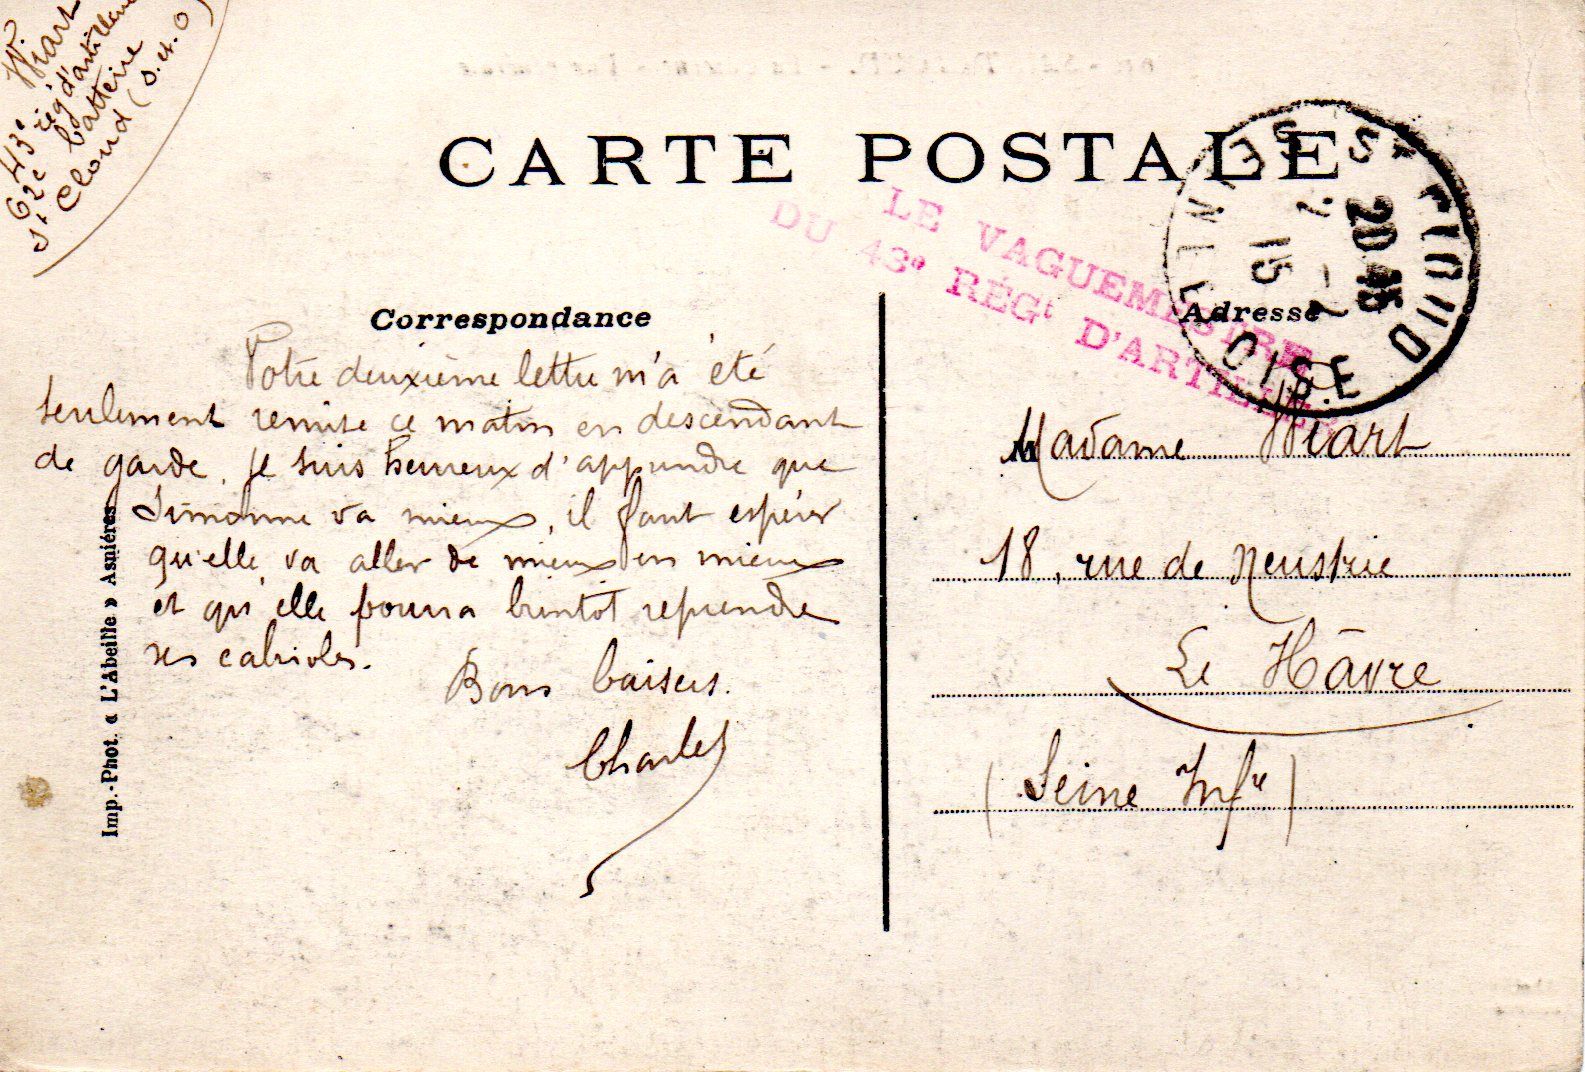 W. Wiart
43e rég d'artillerie
62e batterie
St Cloud (S. et. O)
CARTE POSTALE
LE VAGUEMESTRE
DU 43e RÉGt D'ARTILLERIE
ST CLOUD
20 45
7 - 2
15
SEINE ET OISE
Correspondance
Votre deuxième lettre m'a été
seulement remise ce matin en descendant
de garde. Je suis heureux d'apprendre que
Simonne va mieux, il faut espérer
qu'elle va aller de mieux en mieux
et qu'elle pourra bientôt reprendre
ses cabrioles.
Bons baisers.
Charles
Imp.-Phot. « L'Abeille » Asnières
Adresse
Madame Wiart
18, rue de Neustrie
Le Hâvre
(Seine Infre)